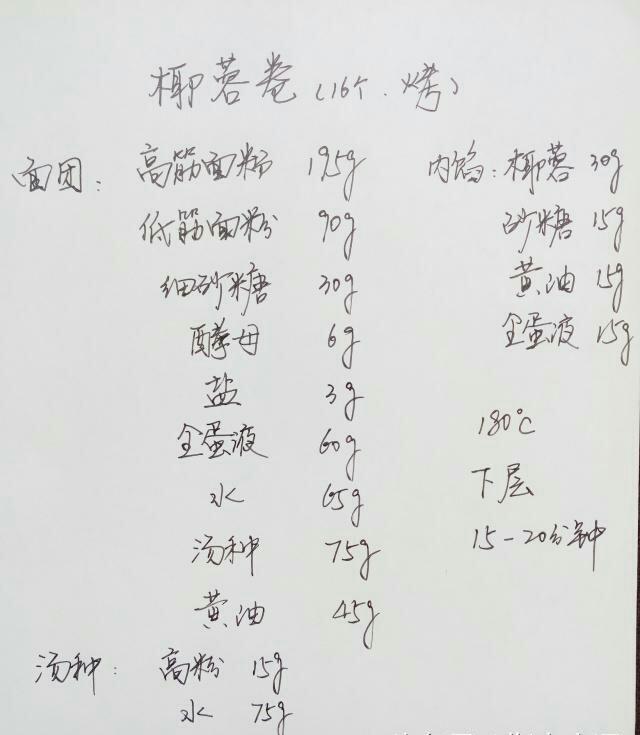 椰蓉卷(16个.烤)
面团: 高筋面粉 195g
低筋面粉 90g
细砂糖 30g
酵母 6g
盐 3g
全蛋液 60g
水 65g
汤种 75g
黄油 45g
汤种: 高粉 15g
水 75g
内馅: 椰蓉 30g
砂糖 15g
黄油 15g
全蛋液 15g
180℃
下层
15-20分钟